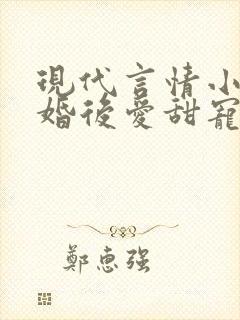 現代言情小
婚後愛甜寵
鄭惠强